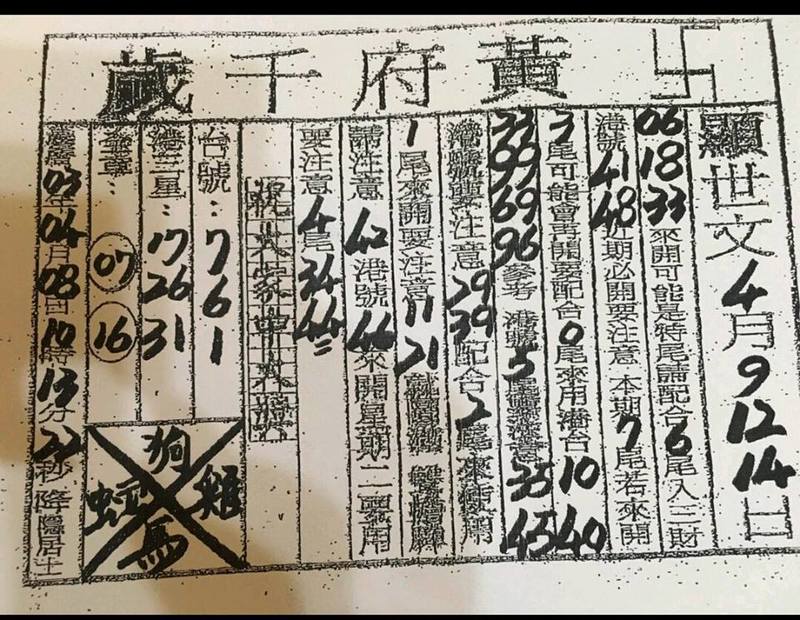 卍 黃府千歲
顯世文 4月 9 12 14 日
06 18 33 來開可能是特尾請配合 6 尾入三財
港號 41 48 近期必開要注意 本期 7 尾若來開
3 尾可能會再開要配合 0 尾來用港台 10 40
33 99 69 96 參考 港號 5 尾 注意 35 45
港號要注意 29 39 配合 2 尾來使用
1 尾來開要注意 11 21
請注意 42 港號 46 來開星期二要用
要注意 4 尾 34 44
祝大家中大獎
台號: 7 6 1
港三星: 17 26 31
07 16
狗
蛇 雞
馬
03年 04月 08日 10時 13分 22秒 降 隱居士